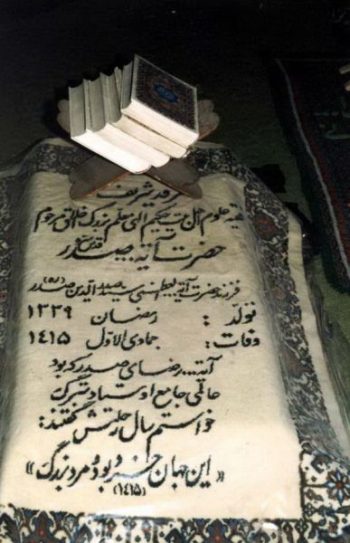 مرقد شریف
فقیه علوم آل حکیم الهی معلم بزرگ اخلاق مرحوم
حضرت آیة الله صدر
فرزند حضرت آیة الله العظمی سید صدرالدین صدر (ره)
تولد : رمضان ۱۳۳۹
وفات : جمادی الاول ۱۴۱۵
آیة ... رضای صدر که بود
عالمی جامع اوستاد سترگ
خواستم سال رحلتش گفتند :
«این جهان خرد بود و مرد بزرگ»
(۱۴۱۵)